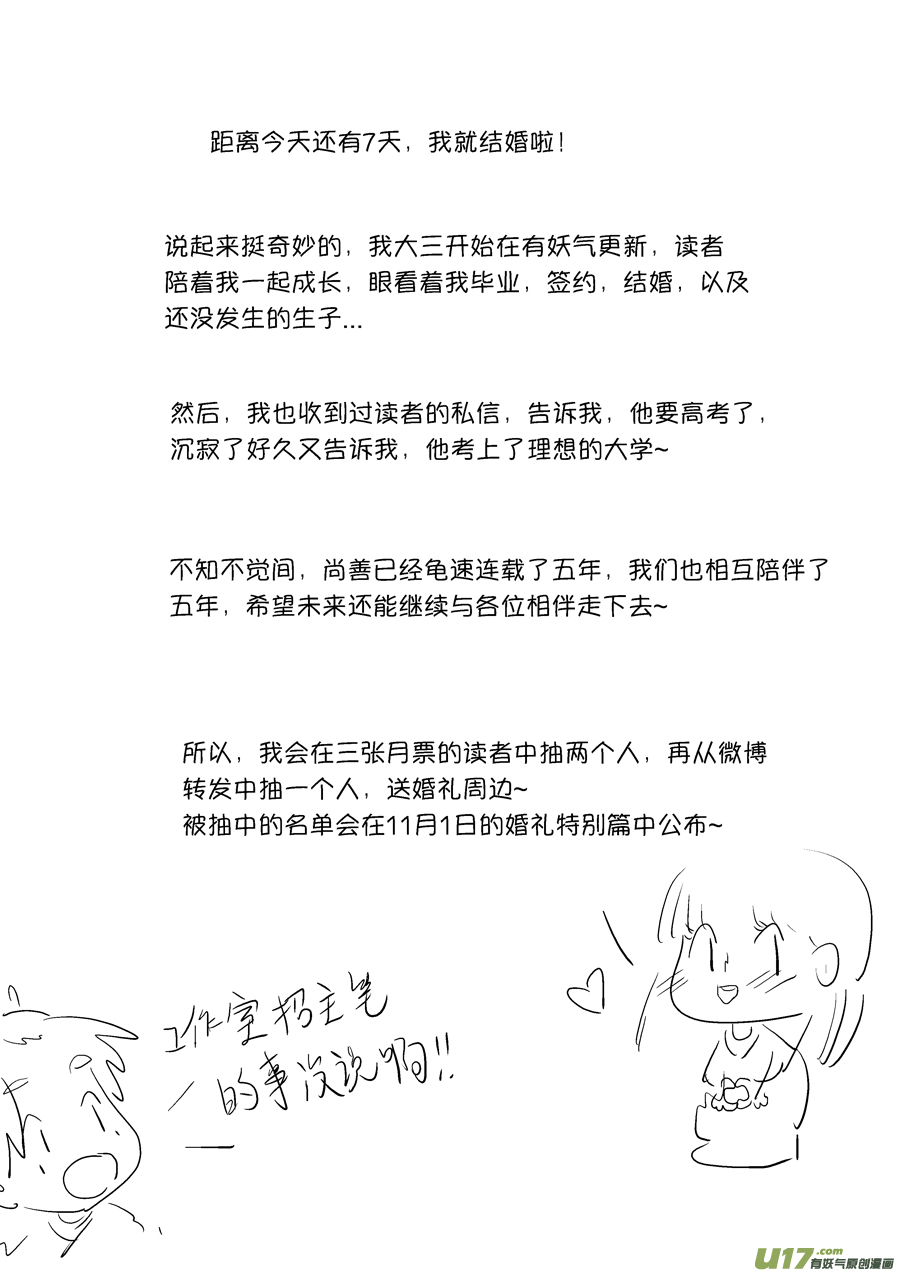 距离今天还有7天，我就结婚啦！
说起来挺奇妙的，我大三开始在有妖气更新，读者
陪着我一起成长，眼看着我毕业，签约，结婚，以及
还没发生的生子...
然后，我也收到过读者的私信，告诉我，他要高考了，
沉寂了好久又告诉我，他考上了理想的大学~
不知不觉间，尚善已经龟速连载了五年，我们也相互陪伴了
五年，希望未来还能继续与各位相伴走下去~
所以，我会在三张月票的读者中抽两个人，再从微博
转发中抽一个人，送婚礼周边~
被抽中的名单会在11月1日的婚礼特别篇中公布~
工作室招主笔
的事没说啊!!
U17.com
有妖气原创漫画